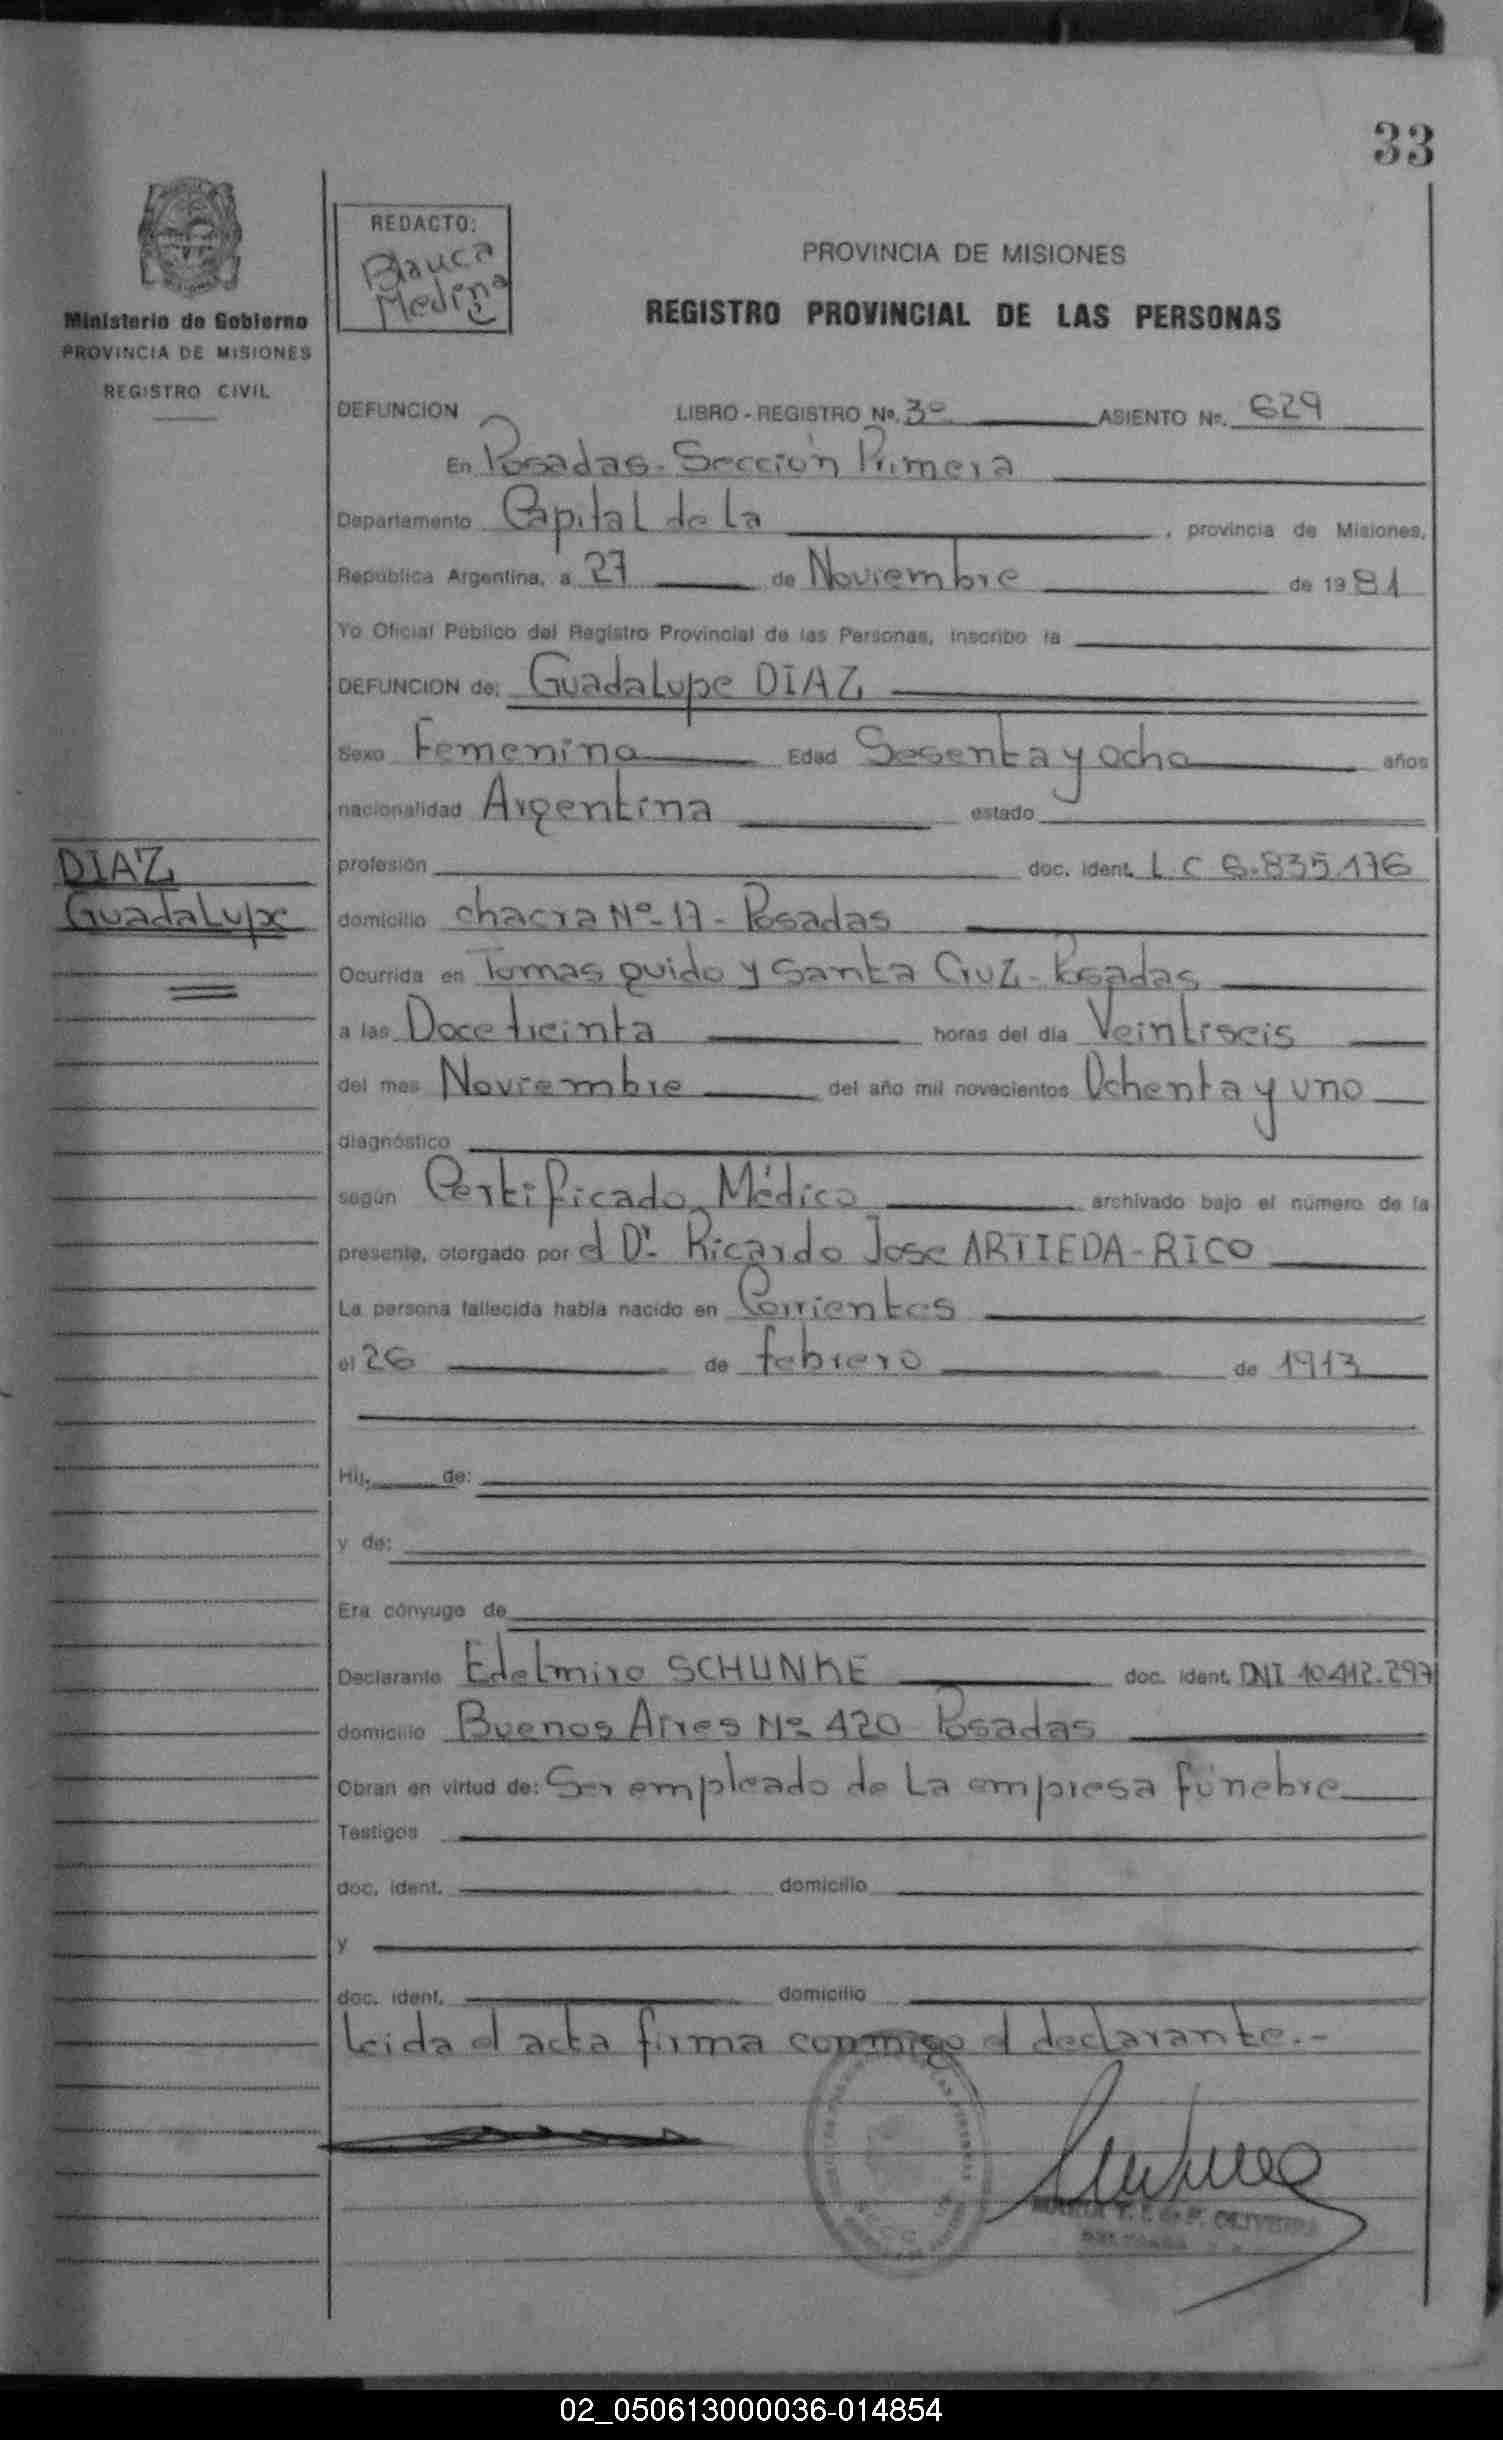 33
REDACTO:
Blanca
Medina
Ministerio de Gobierno
PROVINCIA DE MISIONES
REGISTRO CIVIL
PROVINCIA DE MISIONES
REGISTRO PROVINCIAL DE LAS PERSONAS
DEFUNCION LIBRO - REGISTRO No. 3º ASIENTO No. 629
En Posadas - Sección Primera
Departamento Capital de la , provincia de Misiones,
República Argentina, a 27 de Noviembre de 1981
Yo Oficial Público del Registro Provincial de las Personas, inscribo la
DEFUNCION de: Guadalupe DIAZ
Sexo Femenino Edad Sesenta y ocho años
nacionalidad Argentina estado
profesión doc. ident. L.C 6.835.176
DIAZ
Guadalupe
domicilio chacra Nº 17 - Posadas
Ocurrida en Tomas guido y Santa Cruz - Posadas
a las Doce treinta horas del día Veintiseis
del mes Noviembre del año mil novecientos Ochenta y uno
diagnóstico
según Certificado Médico archivado bajo el número de la
presente, otorgado por el Dr. Ricardo Jose ARTIEDA - RICO
La persona fallecida había nacido en Corrientes
el 26 de febrero de 1913
Hij. de:
y de:
Era cónyuge de
Declarante Edelmiro SCHUNKE doc. ident. DNI 10.412.297
domicilio Buenos Aires Nº 420 Posadas
Obran en virtud de: Ser empleado de la empresa fúnebre
Testigos
doc. ident. domicilio
y
doc. ident. domicilio
Leida el acta firma conmigo el declarante.-
OLIVEIRA
02_050613000036-014854